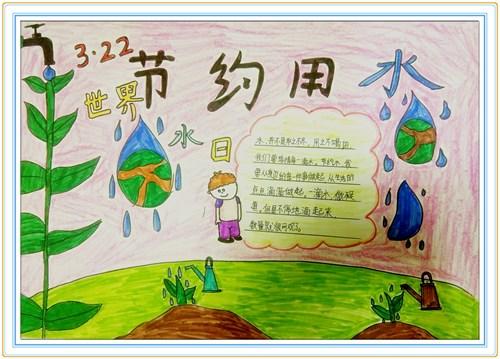 3.22
世界
水
日
节约用水
水，并不是取之不尽，用之不竭的，
我们要珍惜每一滴水，节约水，我
要从身边的每一件事做起，从生活的
点点滴滴做起，一滴水，微不足
道，但是不停地滴起来，
数量就很可观了。